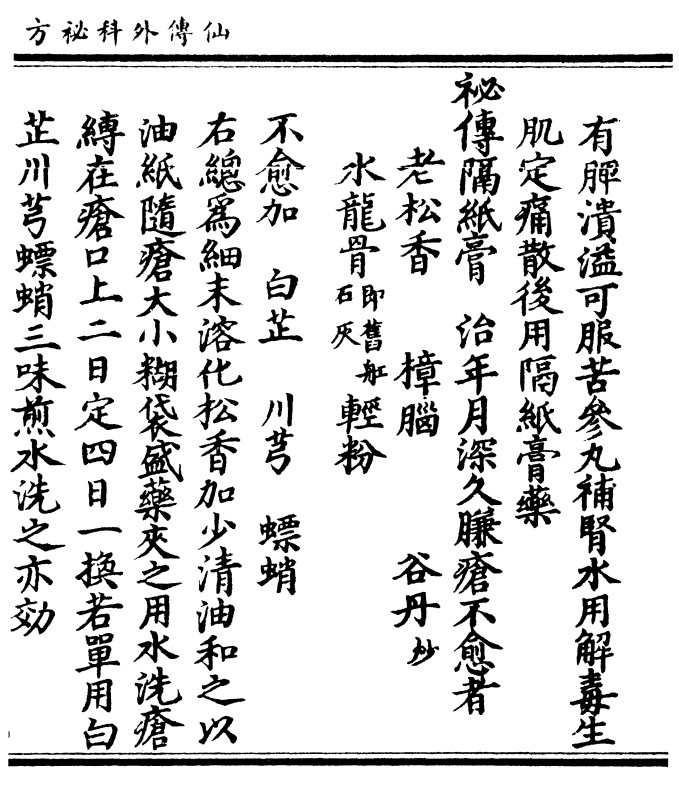 仙傳外科祕方
有脛潰溢可服苦參丸補腎水用解毒生
肌定痛散後用隔紙膏藥
祕傳隔紙膏　治年月深久臁瘡不愈者
老松香　樟腦　谷丹炒
水龍骨即舊舡石灰　輕粉
不愈加　白芷　川芎　螵蛸
右總爲細末溶化松香加少清油和之以
油紙隨瘡大小糊袋盛藥夾之用水洗瘡
縛在瘡口上二日定四日一換若單用白
芷川芎螵蛸三味煎水洗之亦効